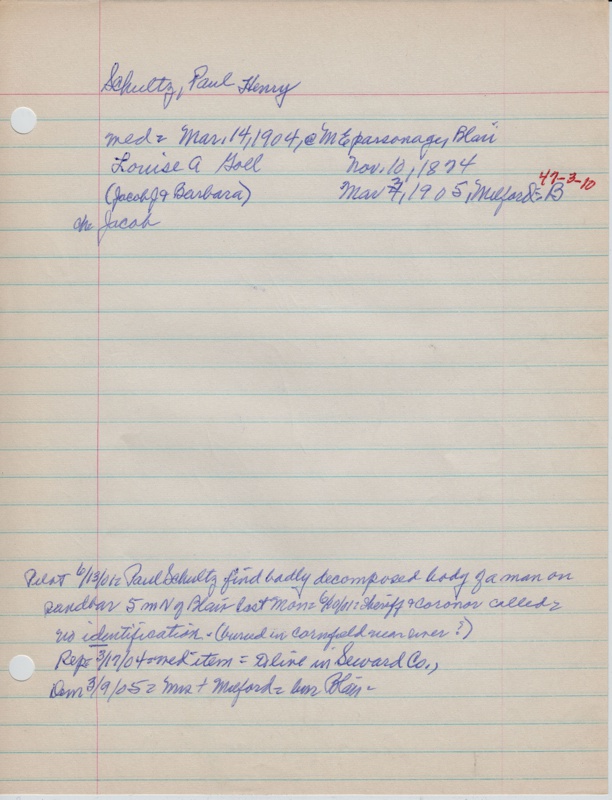 Schultz, Paul Henry
med = Mar. 14, 1904, @ M E parsonage, Blair
Louise A Goll Nov. 10, 1874
(Jacob J & Barbara) Mar 1905, Milford = B 47-3-10
ch: Jacob
Pilot 6/13/01 = Paul Schultz find badly decomposed body of a man on
sandbar 5 m N of Blair last Mon = 6/10/01 = Sheriff & coroner called =
no identification - (buried in cornfield near river?)
Rep = 3/17/04 = med item = to live in Seward Co.,
Dem 3/9/05 = Mrs + Milford = bur Blair -